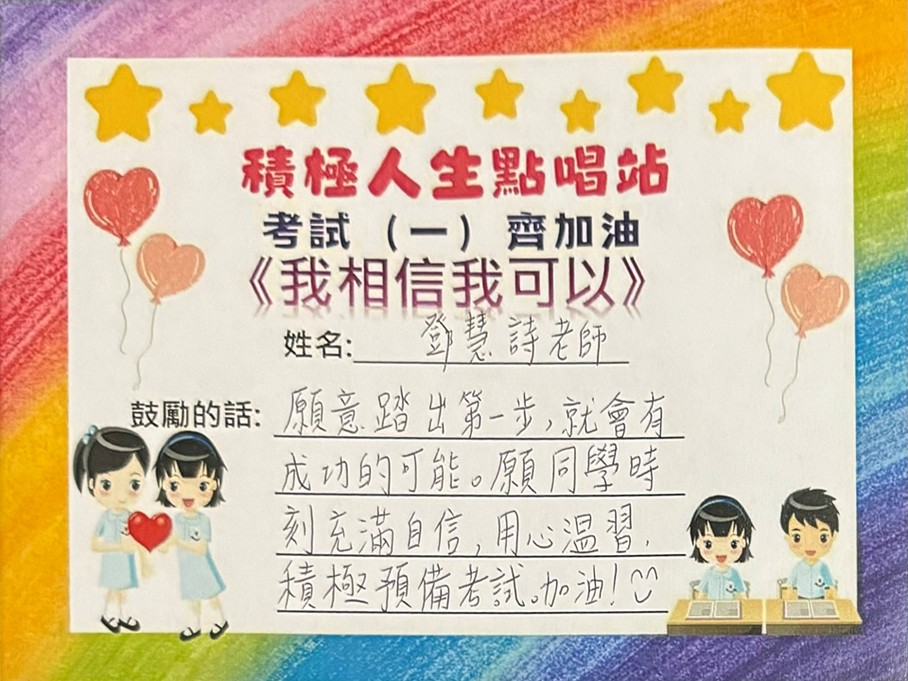 積極人生點唱站
考試（一）齊加油
《我相信我可以》
姓名: 鄧慧詩老師
鼓勵的話: 願意踏出第一步,就會有
成功的可能。願同學時
刻充滿自信,用心溫習,
積極預備考試。加油!